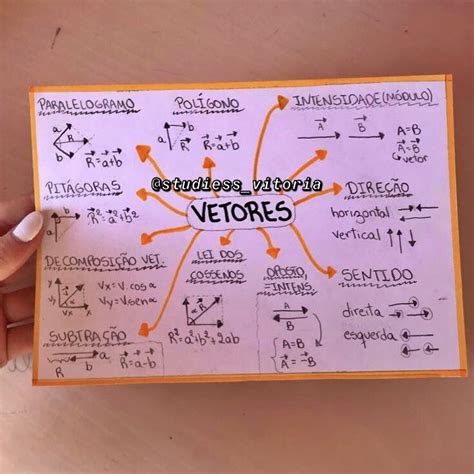 PARALELOGRAMO
a
R
b
R=a+b
POLÍGONO
a
R
b
R=a+b
INTENSIDADE (MÓDULO)
A
B
A=B
A=B
vetor
@studiess_vitoria
PITÁGORAS
b
a
R²=a²+b²
VETORES
DIREÇÃO
horizontal
vertical
DECOMPOSIÇÃO VET.
y
x
Vx=V.cosα
Vy=V.senα
LEI DOS
COSSENOS
a
R
b
R²=a²+b²+2ab
OPOSTO,
=INTENS.
A
B
A=B
A=-B
SENTIDO
direita
esquerda
SUBTRAÇÃO
a
R
b
R=a-b